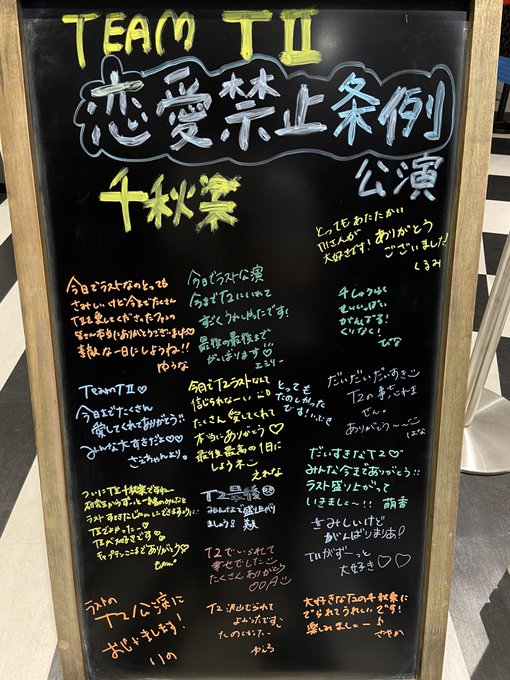 TEAM TⅡ
恋愛禁止条例
公演
千秋楽
とってもあたたかい
TⅡさんが
大好きです!ありがとう
ございました!
くるみ
今日でラストなのとっても
さみしいけど今までたくさん
TⅡを愛してくださったファンの
皆さん本当にありがとうございます
素敵な一日にしようね!!
ゆうな
今日でラスト公演
今までT2にいれて
すごくうれしかったです!
最後の最後まで
がんばります♡
エミリー
千しゅうらく
せいいっぱい
がんばる!
くいなく!
ひな
TeamTⅡ♡
今日までたくさん
愛してくれてありがとう
みんな大すきだよ♡♡
さえちゃんより。
今日でT2ラストなんて
信じられな〜い
たくさん愛してくれて
本当にありがとう♡
最後最高の1日に
しようネ
えれな
とっても
たのしかった
です!いぶき
だいだいだいすき
T2の事忘れま
せん。
ありがとう〜〜
はな
だいすきなT2♡
みんな今まであ!りがとう!!
ラスト盛り上がって
いきましょ〜!! 萌香
ついにTⅡ千秋楽ですね〜
ラスト
T2最後
みんなで盛り上がり
ましょう!
さみしいけど
がんばりまりお!
TⅡがず〜っと
大好き♡♡
T2でいられて
幸せでした
たくさんありがとう
ラストの
T2公演に
おじゃまします!
りの
T2 沢山でられて
よかったです
たのしかった〜
大好きなT2の千秋楽に
でられてうれしいです!
楽しみましょ〜
さやの